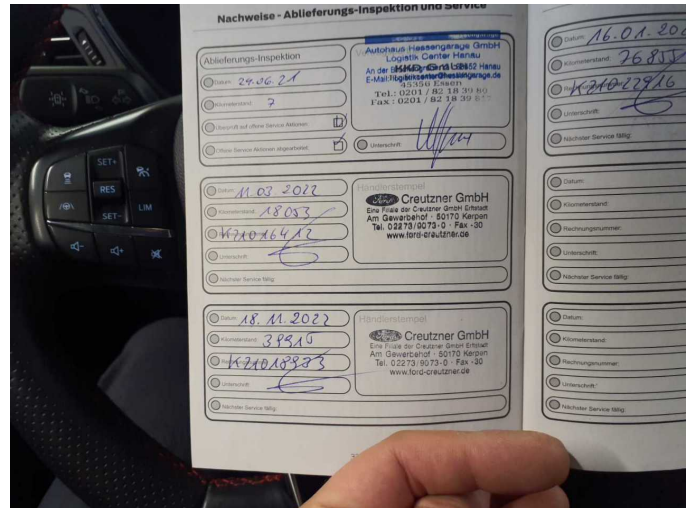 Nachweise - Ablieferungs-Inspektion und Service
Ablieferungs-Inspektion
Datum: 24.06.21
Kilometerstand: 7
Überprüft auf offene Service Aktionen:
Offene Service Aktionen abgearbeitet:
Autohaus Hessengarage GmbH
Logistik Center Hanau
KKD GmbH
45356 Essen
Tel.: 0201 / 82 18 39 80
Fax: 0201 / 82 18 39
Unterschrift:
Datum: 11.03.2022
Kilometerstand: 18053
K71016412
Unterschrift:
Nächster Service fällig:
Händlerstempel
Creutzner GmbH
Eine Filiale der Creutzner GmbH Erftstadt
Am Gewerbehof · 50170 Kerpen
Tel. 02273/9073-0 · Fax -30
www.ford-creutzner.de
Datum: 18.11.2022
Kilometerstand: 39910
K71018983
Unterschrift:
Nächster Service fällig:
Händlerstempel
Creutzner GmbH
Eine Filiale der Creutzner GmbH Erftstadt
Am Gewerbehof · 50170 Kerpen
Tel. 02273/9073-0 · Fax -30
www.ford-creutzner.de
Datum: 16.01.
Kilometerstand: 76855
K71022916
Unterschrift:
Nächster Service fällig:
Datum:
Kilometerstand:
Rechnungsnummer:
Unterschrift:
Nächster Service fällig:
Datum:
Kilometerstand:
Rechnungsnummer:
Unterschrift:
Nächster Service fällig:
SET+
RES
SET-
LIM